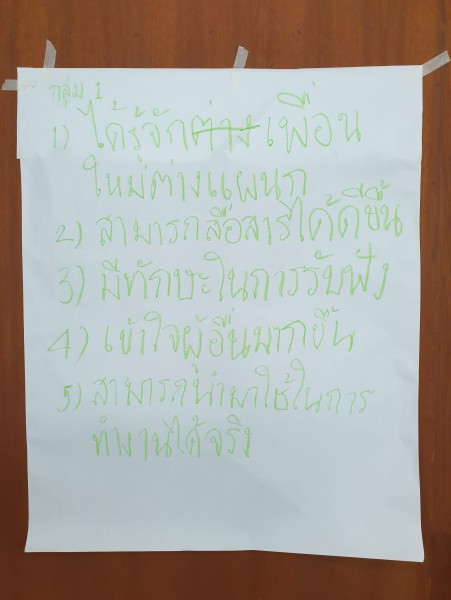 กลุ่ม 1
1) ได้รู้จักต่างเพื่อน
ใหม่ต่างแผนก
2) สามารถสื่อสารได้ดีขึ้น
3) มีทักษะในการรับฟัง
4) เข้าใจผู้อื่นมากขึ้น
5) สามารถนำมาใช้ในการ
ทำงานได้จริง